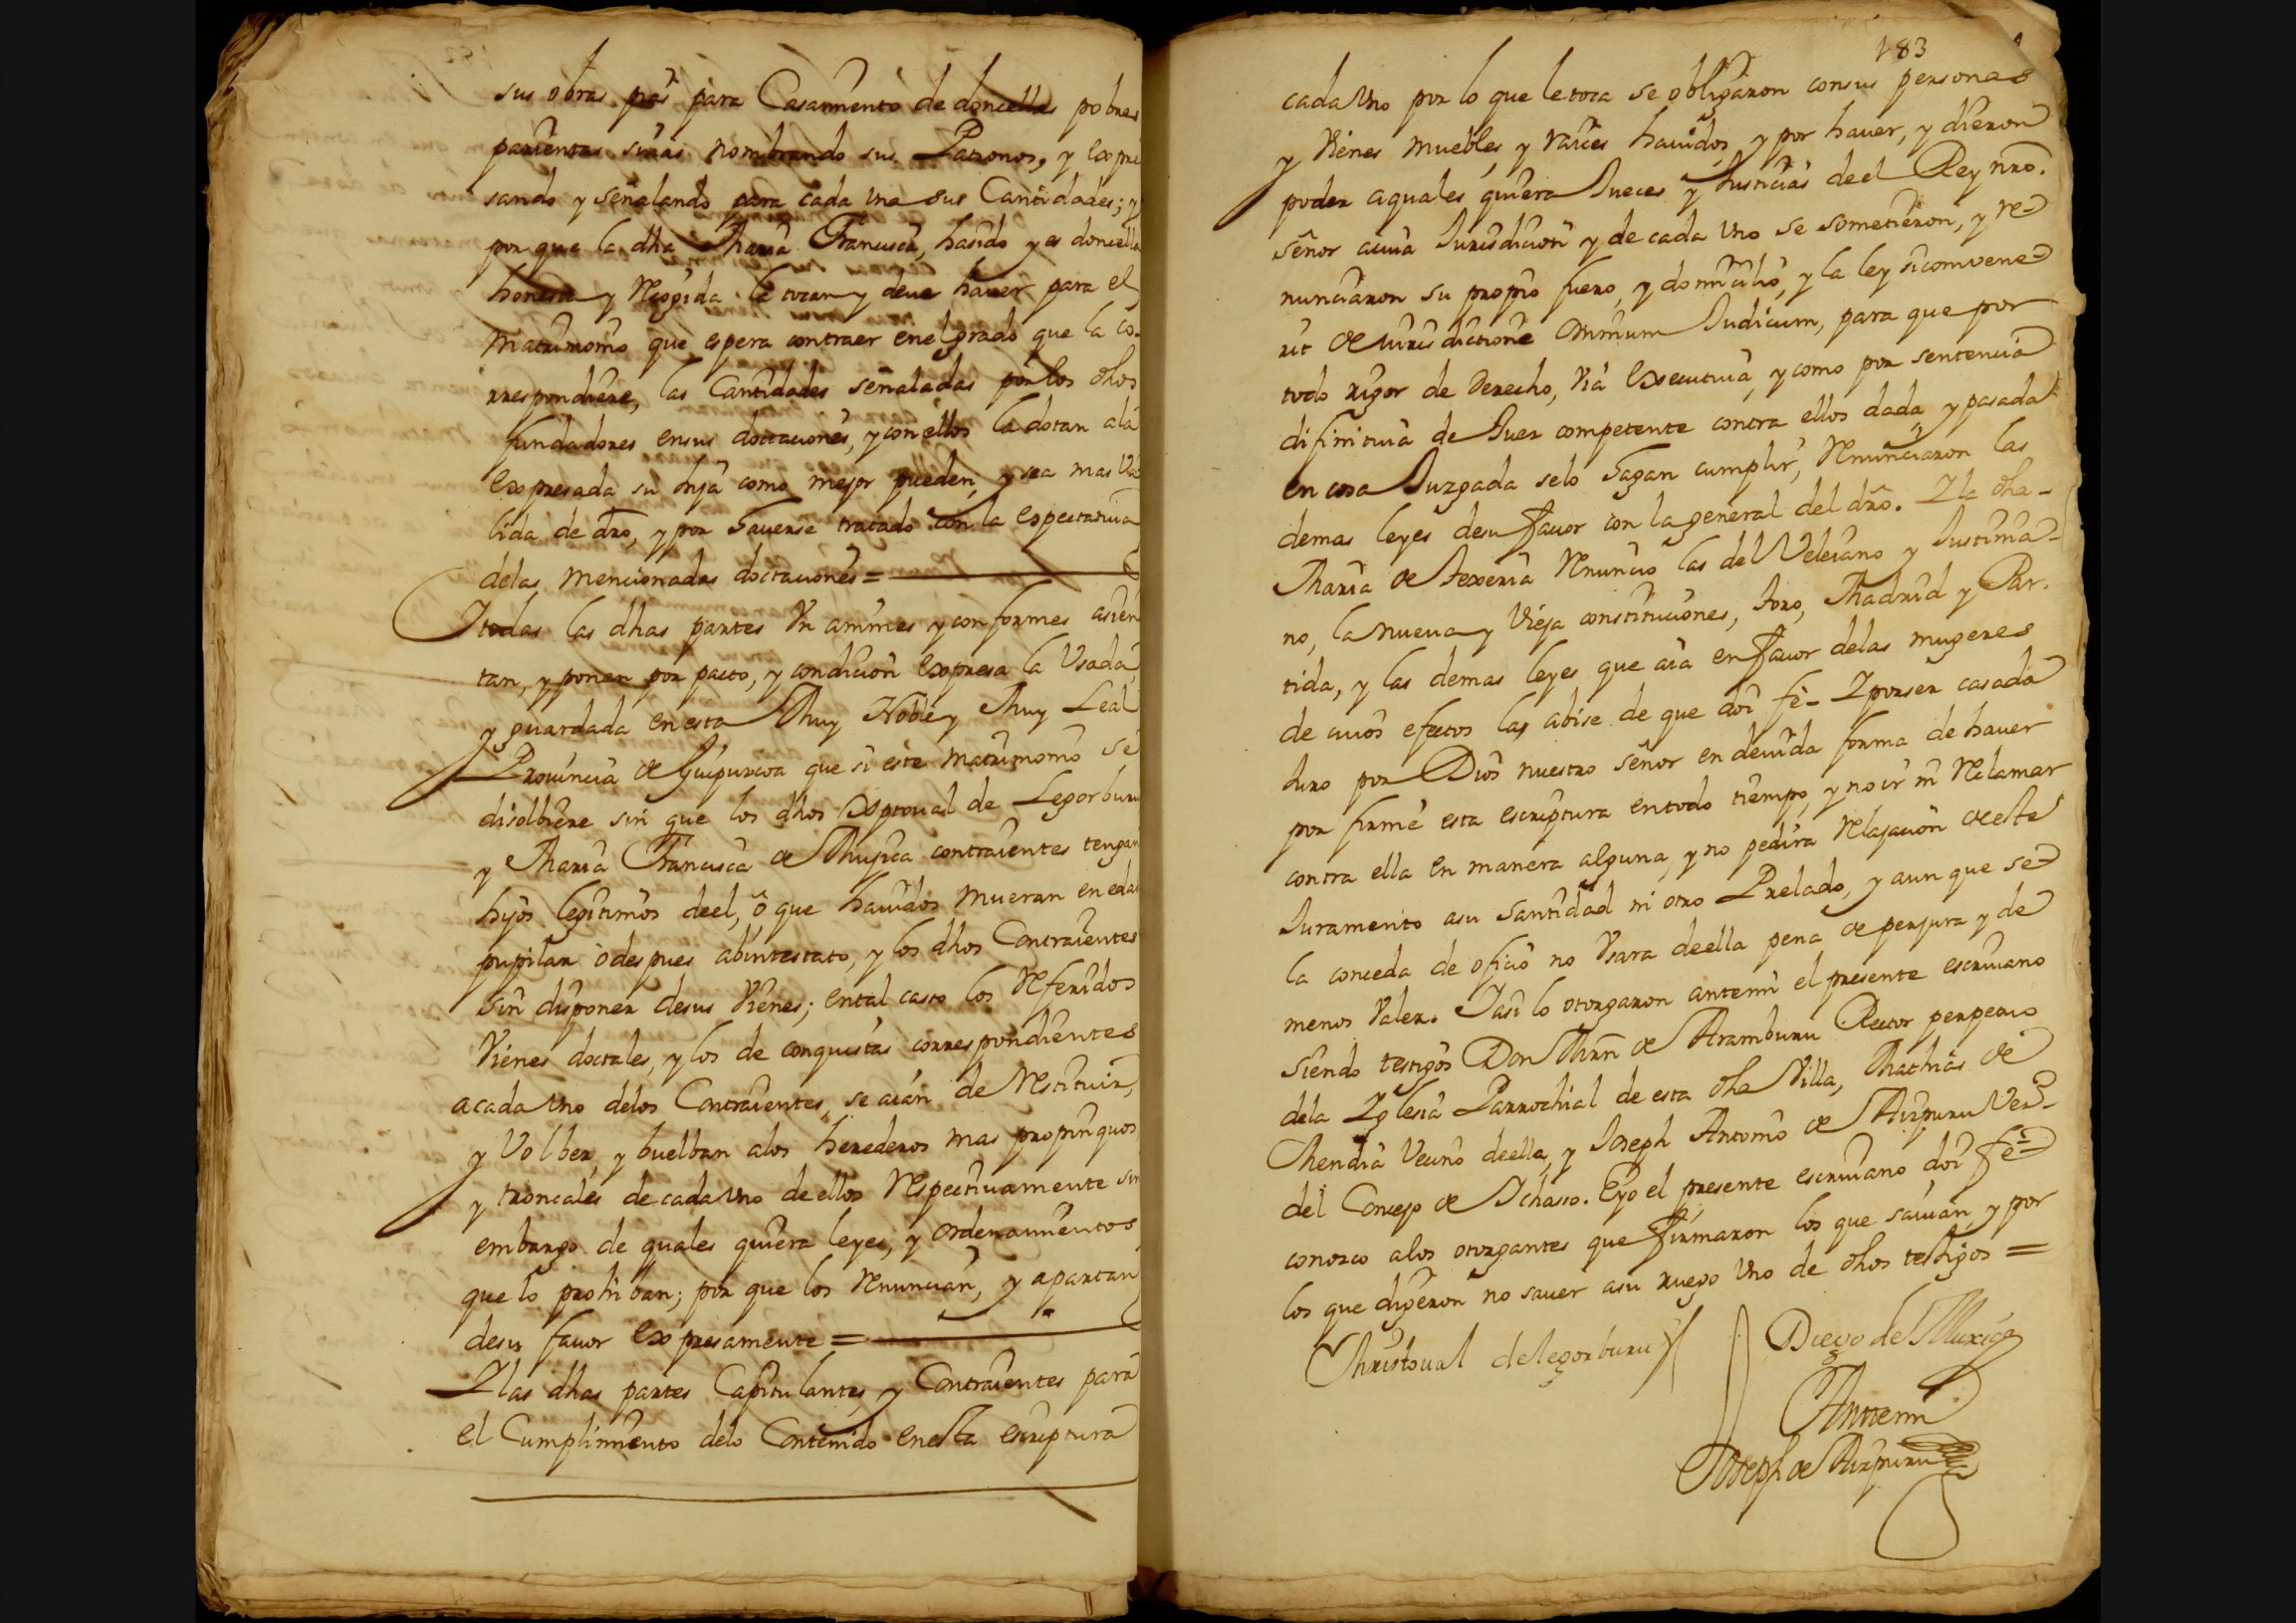 sus obras pias para Casamiento de doncellas pobres
parientas suias nombrando sus Patronos, y expre
sando y señalando para cada una sus Cantidades; y
por que la dha Maria Francisca, hasido y es doncella
honesta y Recogida le tocan y deve haver para el
matrimonio que espera contraer enel grado que la co-
rrespondiere, las Cantidades señaladas por los dhos
fundadores ensus doctaciones, y con ellos la dotan ala
expresada su hija como mejor pueden, y sea mas Va
lida de dro, y por haverse tratado con la expectativa
delas mencionadas doctaciones =
I todas las dhas partes Vnanimes y conformes asien
tan, y ponen por pacto, y condicion expresa la Vsada,
y guardada en esta Muy Noble y Muy Leal
Provincia de Guipuzcoa que si este matrimonio se
disolbiere sin que los dhos Xptoval de Legorburu
y Maria Francisca de Mujica contraientes tengan
hijos legitimos deel, ò que havidos mueran en edad
pupilar ò despues abintestato, y los dhos Contraientes
sin disponer desus Vienes; ental casso los Referidos
Vienes doctales, y los de conquistas correspondientes
acada Vno delos Contraientes, se aian de Restituir,
y Volber, y buelban alos herederos mas propinquos,
y troncales de cada Vno de ellos Respectivamente sin
embargo de quales quiera leyes, y ordenamientos
que lo prohivan; por que los Renuncian, y apartan
desu favor expresamente =
I las dhas partes Capitulantes, y Contraientes para
el Cumplimiento delo Contenido enesta escriptura
183
cada Vno por lo que le toca se obligaron consus personas
y Vienes muebles, y raices havidos, y por haver, y dieron
poder aquales quiera Jueces y Justicias deel Rey nro.
señor acuia Jurisdicion y de cada Vno se sometieron, y re-
nunciaron su propio fuero, y domicilio, y la ley siconvene-
rit de iurisdictione omnium Judicum, para que por
todo rigor de Derecho, Via executiva, y como por sentencia
difinitiva de Juez competente contra ellos dada, y pasada
en cosa Juzgada selo hagan cumplir, Renunciaron las
demas leyes desu favor con la general del dro. I la dha-
Maria de Texeria Renuncio las del Veleiano y Justinia-
no, la nueva y Vieja constituciones, toro, Madrid y Par-
tida, y las demas leyes que aia en favor delas mugeres
de cuios efectos las abise de que doi fè- I porser casada
Juro por Dios nuestro señor en devida forma de haver
por firme esta escriptura entodo tiempo, y no ir ni Reclamar
contra ella en manera alguna, y no pedira Relajacion deeste
Juramento asu Santidad ni otro Prelado, y aun que se
la conceda de oficio no Vsara deella pena de perjura y de
menos Valer. I asi lo otorgaron antemi el presente escrivano
siendo testigos Don Mrn de Aramburu Rector perpetuo
dela Iglesia Parrochial de esta dha Villa, Mathias de
Mendia Vecino deella, y Joseph Antonio de Aizpuru Vezo-
del Concejo de Ichasso. E yo el presente escrivano doi fè-
conozco alos otorgantes que firmaron los que savian, y por
los que digeron no saver asu ruego Vno de dhos testigos =
Christoual delegorburu
Diego de Muxica
Antemi
Joseph de Aizpuru